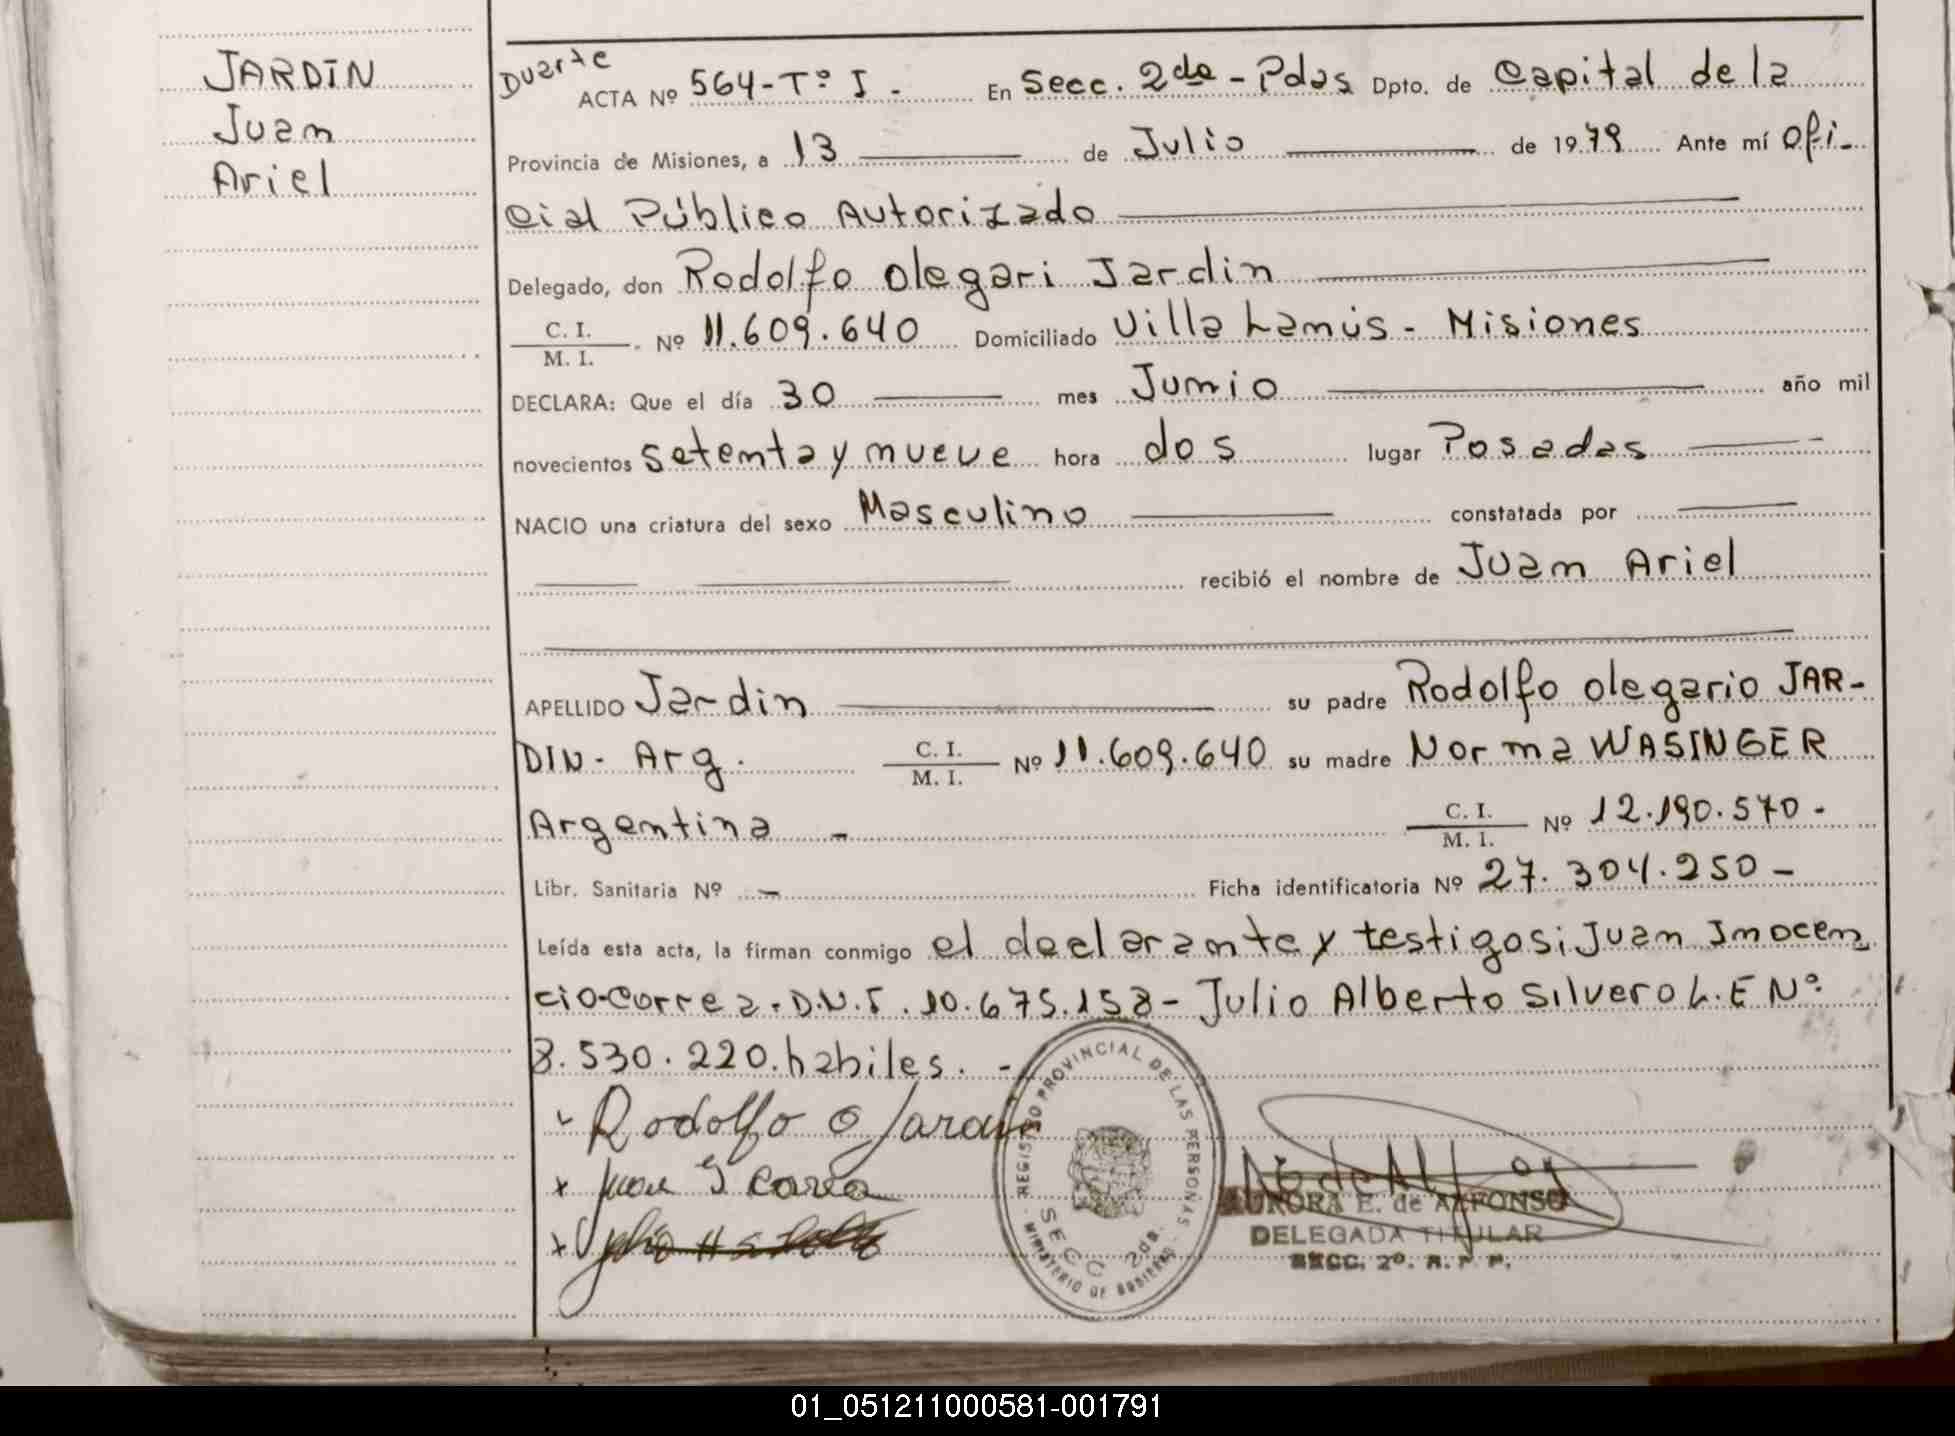 JARDIN
Juan
Ariel
Duarte
ACTA Nº 564-Tº I - En Secc. 2da - Pdas Dpto. de Capital de la
Provincia de Misiones, a 13 de Julio de 1979 Ante mí Ofi-
cial Público Autorizado
Delegado, don Rodolfo Olegari Jardin
C. I.
M. I. Nº 11.609.640 Domiciliado Villa Lanús - Misiones
DECLARA: Que el día 30 mes Junio año mil
novecientos setenta y nueve hora dos lugar Posadas
NACIO una criatura del sexo Masculino constatada por
recibió el nombre de Juan Ariel
APELLIDO Jardin su padre Rodolfo Olegario JAR-
DIN - Arg. C. I.
M. I. Nº 11.609.640 su madre Norma WASINGER
Argentina - C. I.
M. I. Nº 12.190.570 -
Libr. Sanitaria Nº - Ficha identificatoria Nº 27.304.250 -
Leída esta acta, la firman conmigo el declarante y testigos; Juan Inocen
cio Correa. D.N.I. 10.675.158 - Julio Alberto Silvero L.E Nº
8.530.220. habiles. -
Rodolfo O Jardin
x Juan I Correa
x Julio A
REGISTRO PROVINCIAL DE LAS PERSONAS
SECC. 2da.
MINISTERIO DE GOBIERNO
AURORA E. de ALFONSO
DELEGADA TITULAR
SECC. 2º. R. P. P.
01_051211000581-001791